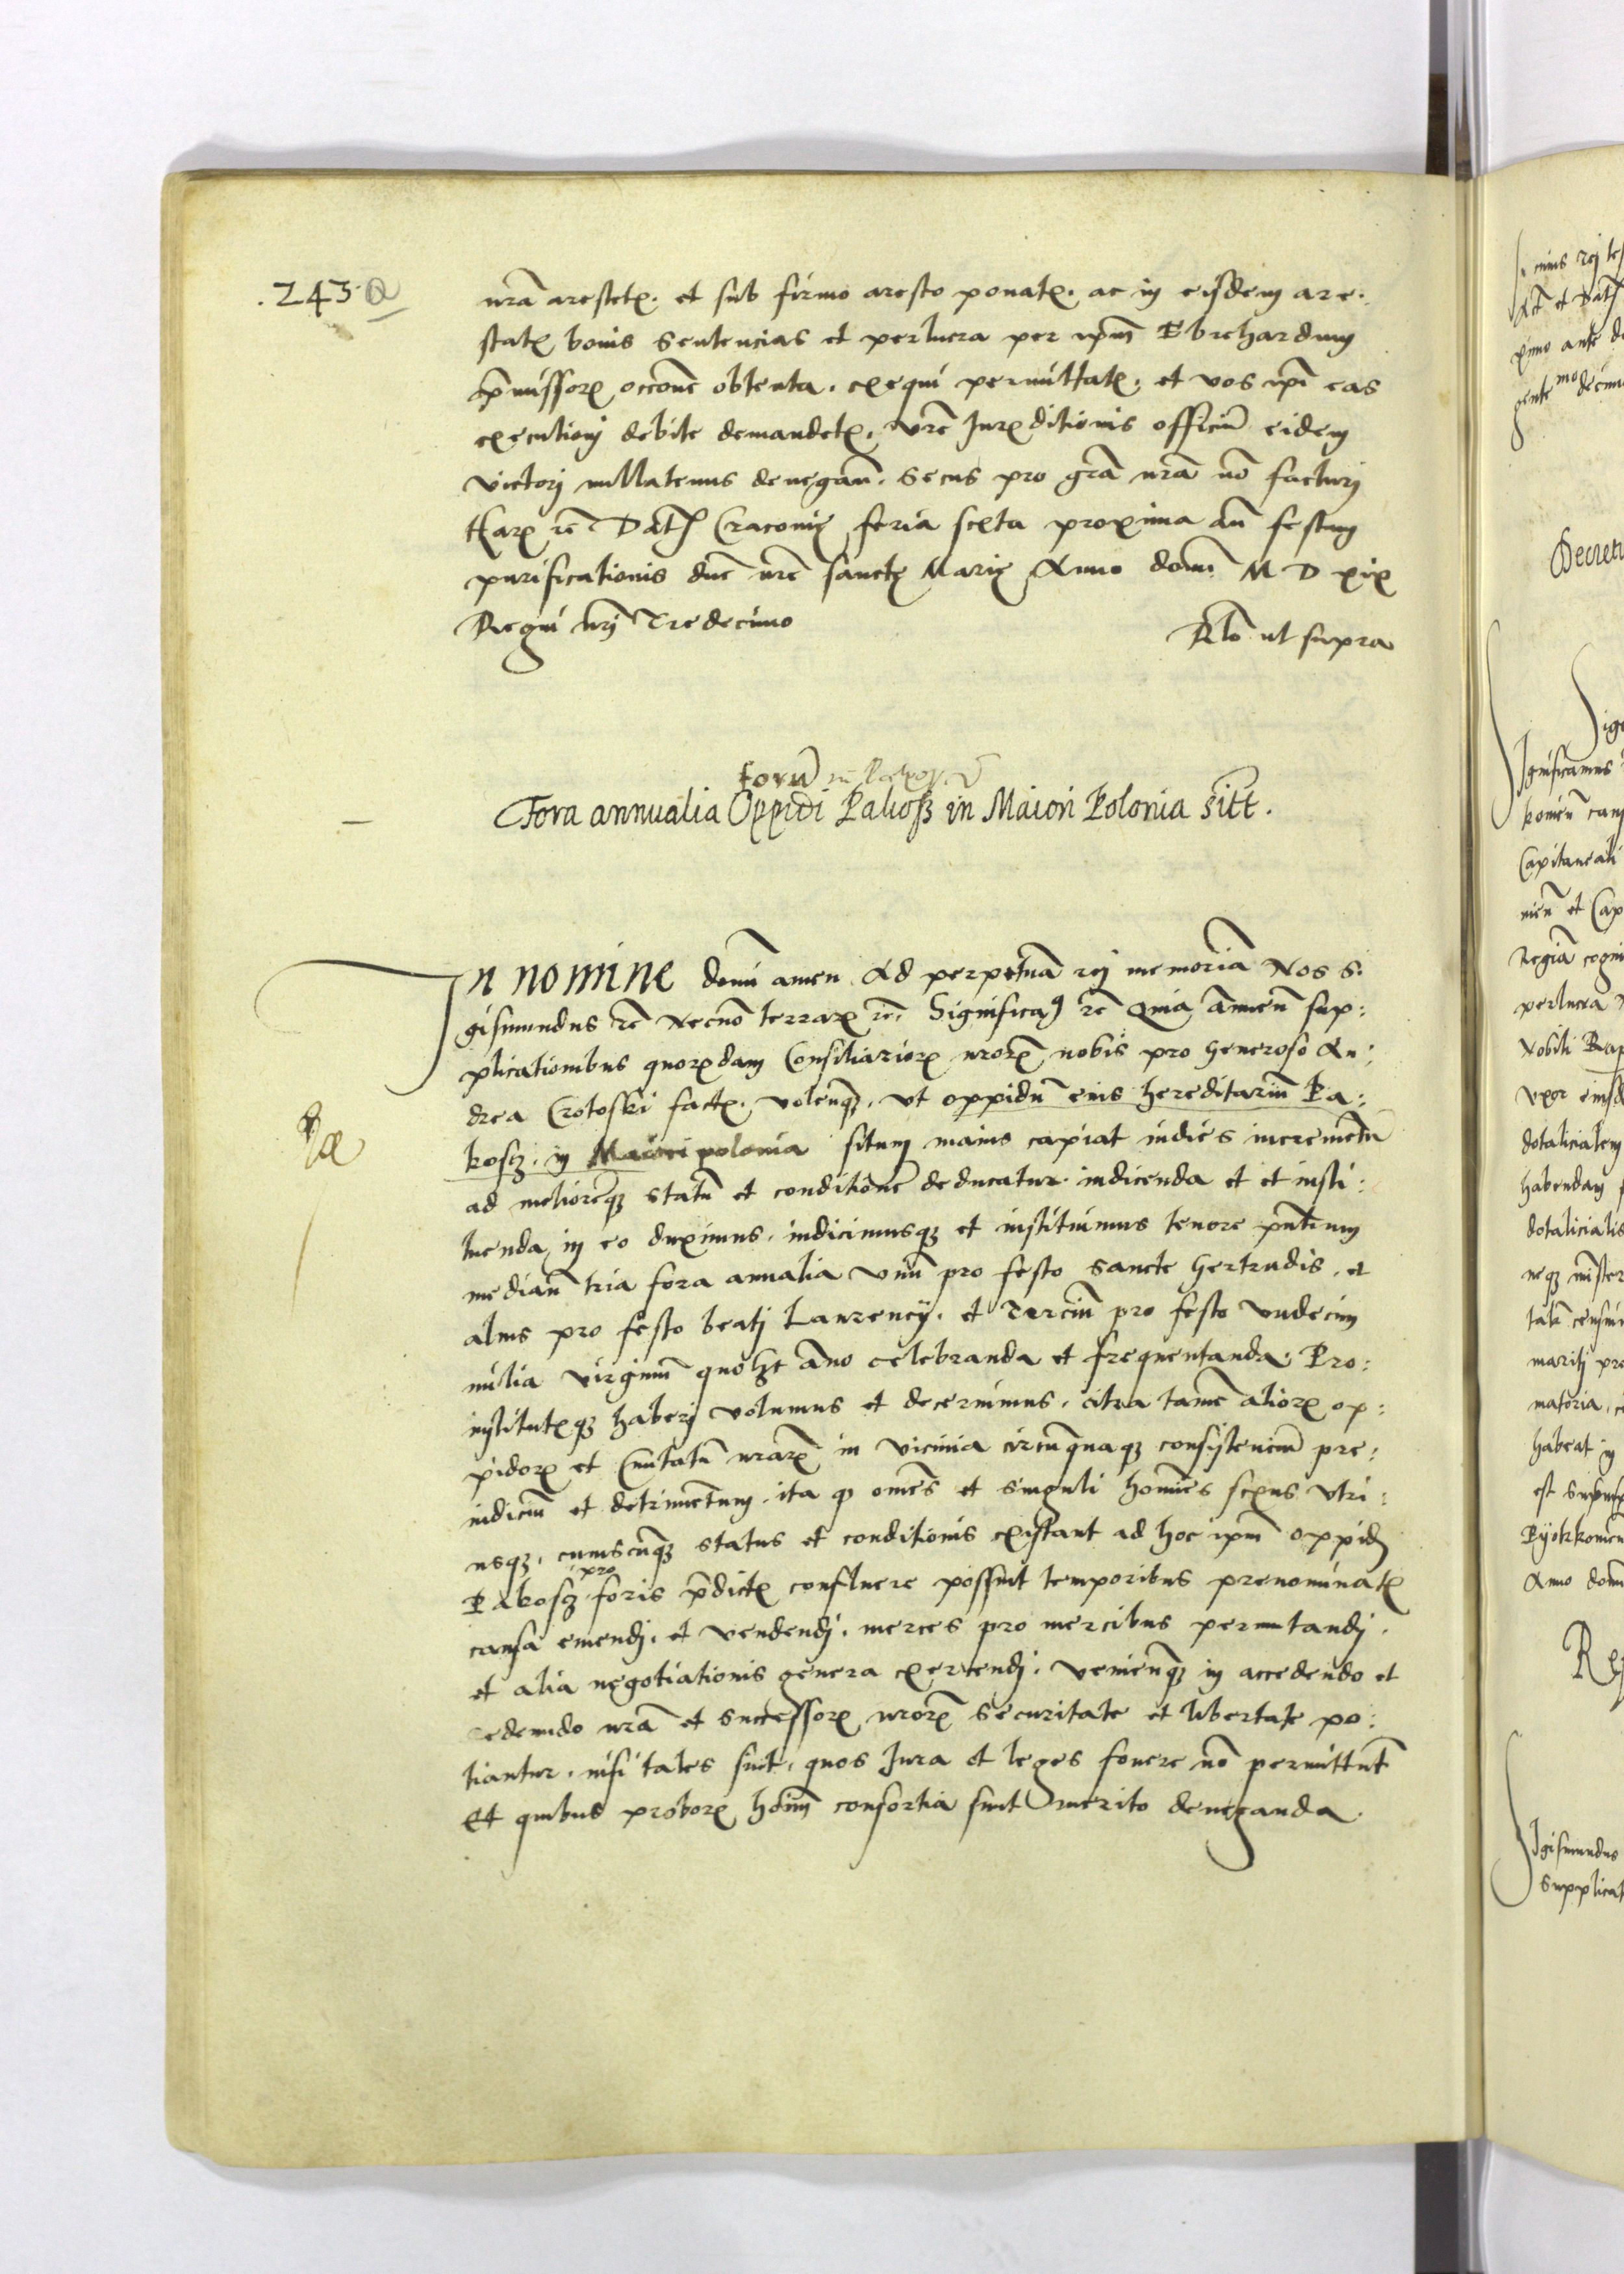 .243.
nrā arestetꝭ. et sub firmo aresto ponatꝭ. ac in eisdem are:
statꝭ bonis sentencias et perlucra per ipm̄ Ebrehardum
p̄missorꝭ occōne obtenta. exequi permittatꝭ. et vos ipi eas
executionj debite demandetꝭ. vrē Jurꝭditionis officiū eidem
victorj nullatenus denegan̄. Secus pro grā nrā nō facturj
Harꝭ rē Datꝭ Cracovię feria sexta proxima an̄ festum
purificationis dnē nrē sanctę Marię Anno domī M D xix
Regni nrj Tredecimo
Rlō ut supra
forū in Pakosz
Fora annualia Oppidi Pakosß in Maiori Polonia sitt.
In nomine domī amen Ad perpetuā rej memoriā Nos Si
gismundus rē Necnō terrarꝭ rē. Significaꝰ rē Quia annuen̄ sup:
plicationibus quorꝭdam Consiliariorꝭ nrorꝭ nobis pro generoso An:
drea Crotoski factꝭ. volenqꝫ. vt oppidū eius hereditariū Pa:
kosz. in Maiori polonia situm maius capiat indies incremētū
ad meliorēqꝫ statū et conditionē deducatur. indicenda et et insti:
tuenda in eo duximus. indicimusqꝫ et instituimus tenore pn̄tium
median̄ tria fora annalia vnū pro festo Sancte Hertrudis. et
alius pro festo beatj Laurencij. et Terciū pro festo vndecim
milia virginū quolꝫt āno celebranda et frequentanda. Pro:
institutꝭqꝫ haberj volumus et decernimus. citra tamē aliorꝭ op:
pidorꝭ et Ciuitatū nrarꝭ in vicinia circūquaqꝫ consistenciū pre:
iudiciū et detrimentum. ita qꝫ omēs et singuli homīes sexus vtri:
usqꝫ. cuiuscūqꝫ status et conditionis existant ad hoc ipm̄ oppidū
pro
Pakosz foris p̄dictꝭ confluere possint temporibus prenominatꝭ
causa emendj. et vendendj. merces pro mercibus permutandj.
et alia negotiationis genera exercendj. venienqꝫ in accedendo et
redeundo nrā et successorꝭ nrorꝭ securitate et libertate po:
tiantur. nisi tales sint. quos Jura et leges fovere nō permittūt
Et quibus proborꝭ hoīm consortia sunt merito deneganda.